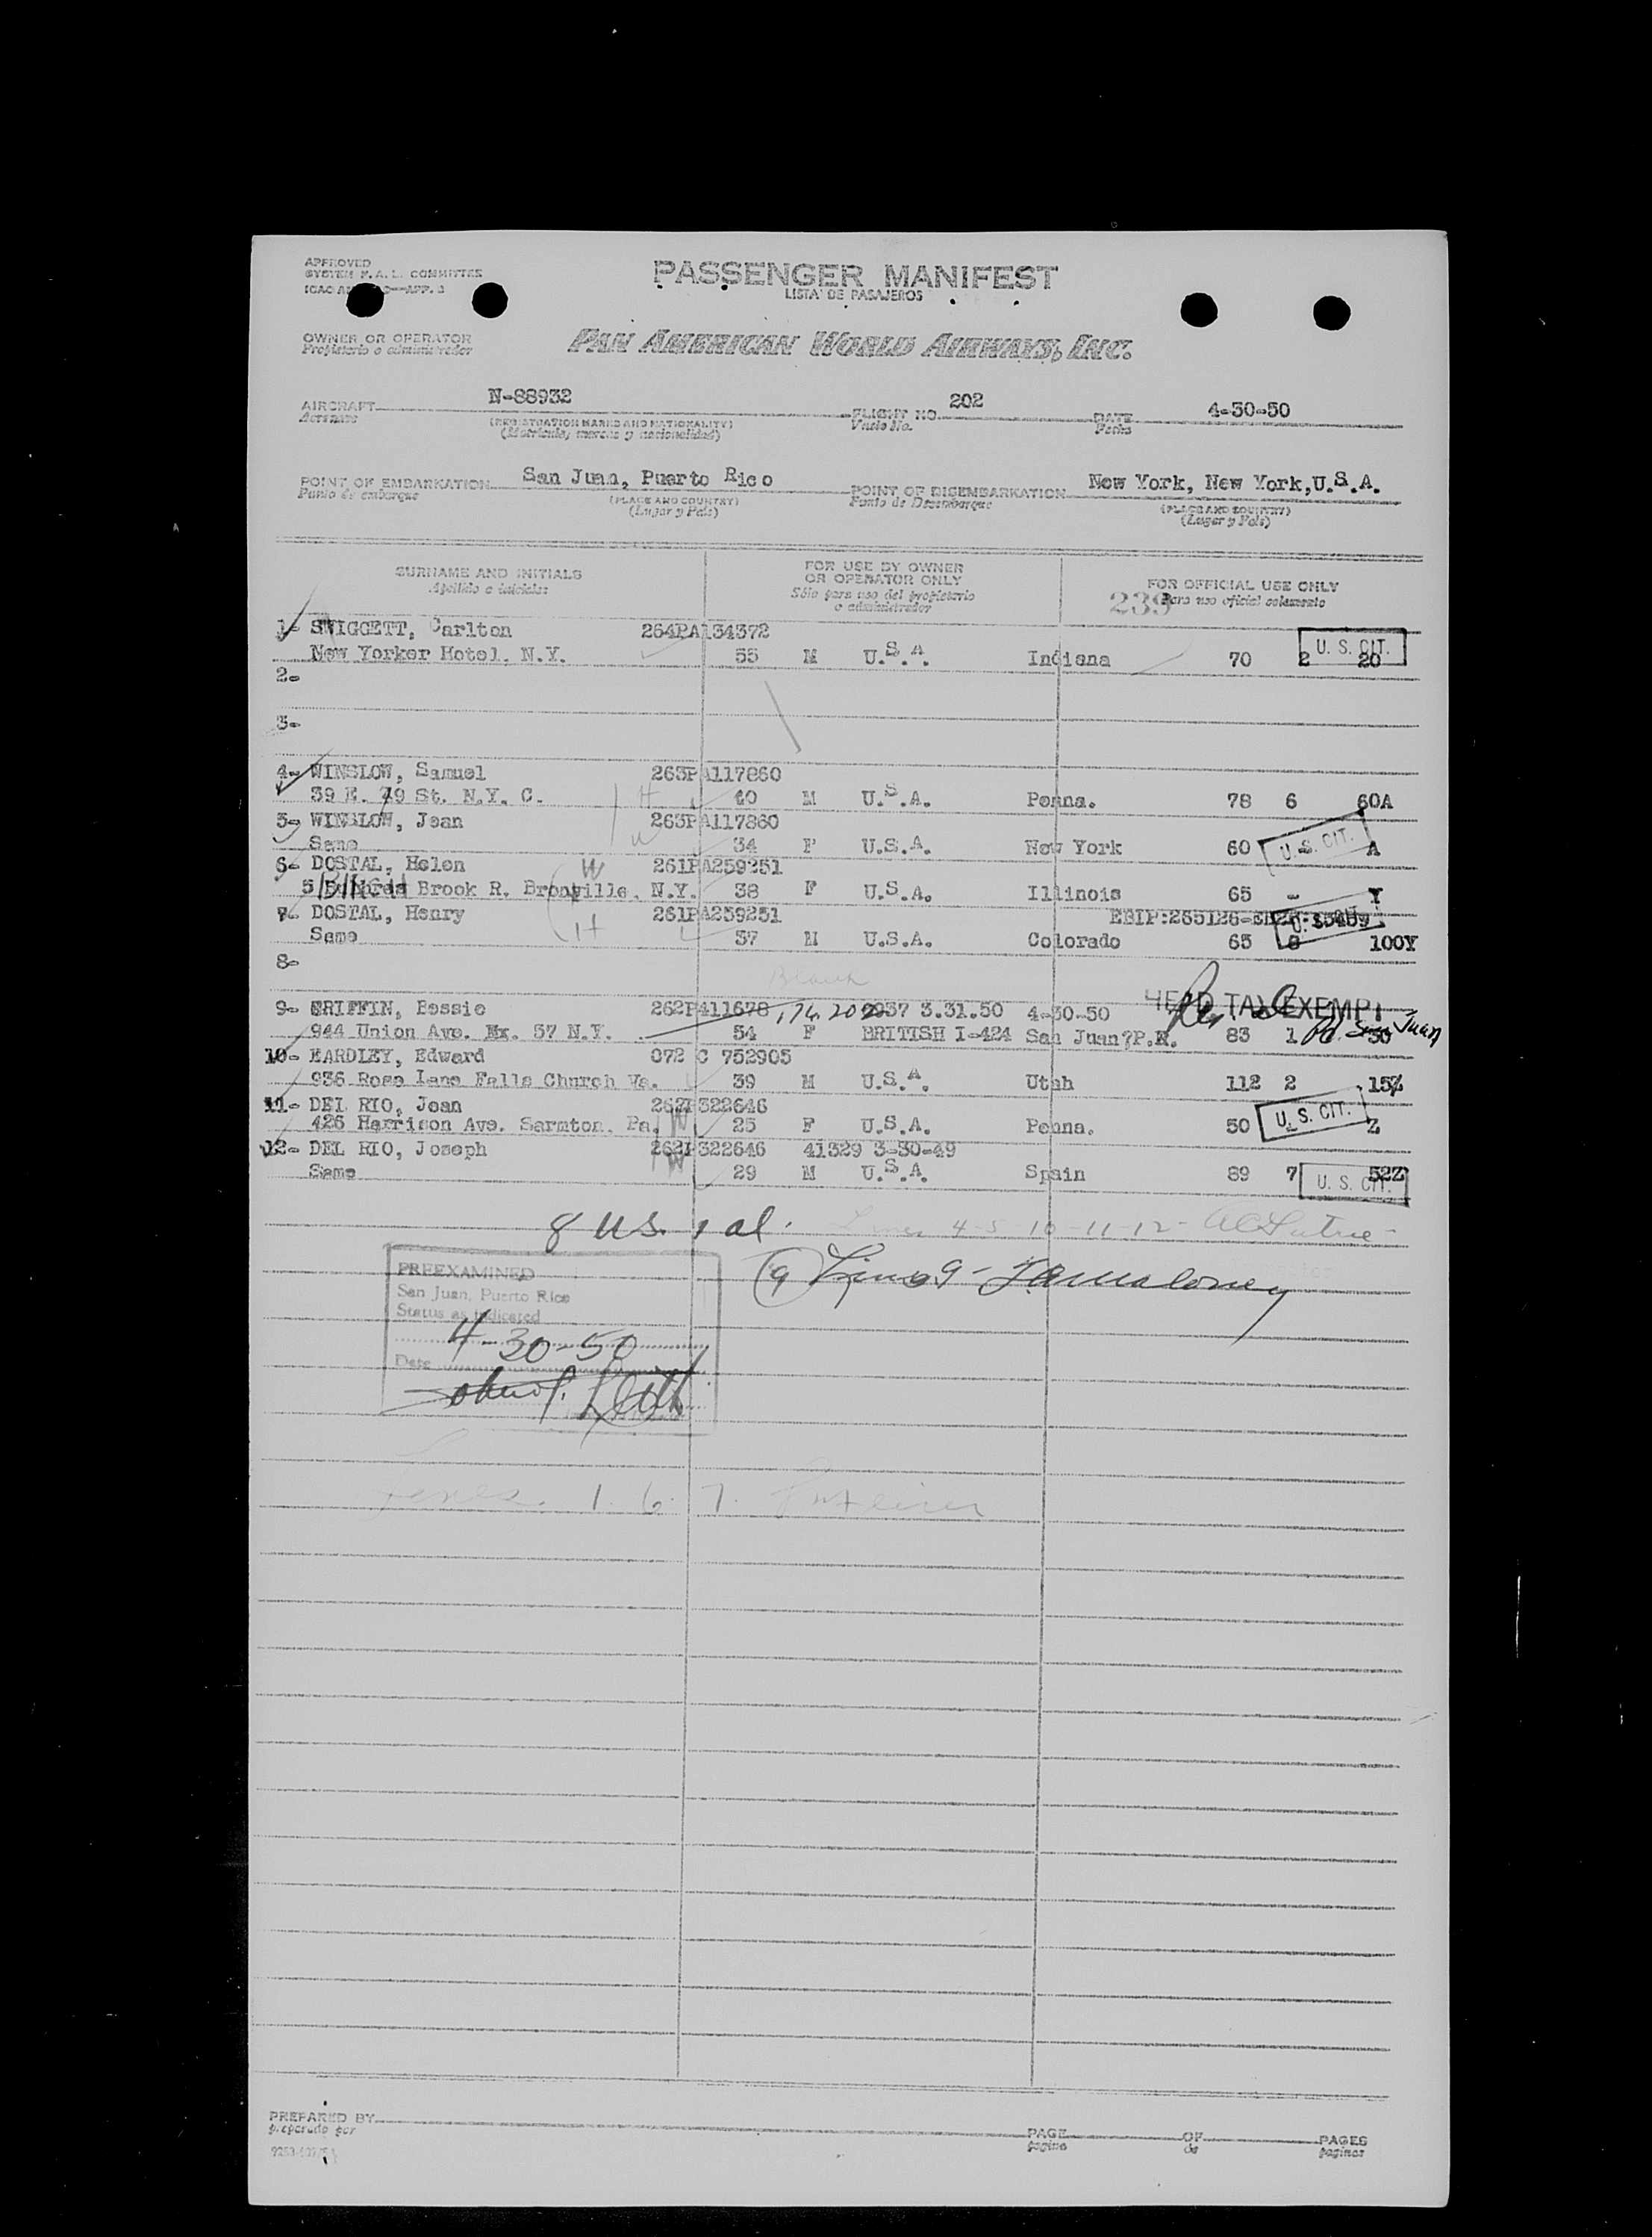 APPROVED
SYSTEM F.A.L. COMMITTEE
PASSENGER MANIFEST
LISTA DE PASAJEROS
OWNER OR OPERATOR
Propietario o administrador
PAN AMERICAN WORLD AIRWAYS, INC.
AIRCRAFT N-88932 FLIGHT NO. 202 DATE 4-30-50
Aeronave (REGISTRATION MARKS AND NATIONALITY) Vuelo No. Fecha
(Matricula, marcas y nacionalidad)
POINT OF EMBARKATION San Juan, Puerto Rico POINT OF DISEMBARKATION New York, New York, U.S.A.
Punto de embarque (PLACE AND COUNTRY) Punto de Desembarque (PLACE AND COUNTRY)
(Lugar y Pais) (Lugar y Pais)
SURNAME AND INITIALS FOR USE BY OWNER OR OPERATOR ONLY FOR OFFICIAL USE ONLY
Apellido e iniciales Sólo para uso del propietario o administrador 239 Para uso oficial solamente
1- SWIGGETT, Carlton 264PA134372
New Yorker Hotel. N.Y. 55 M U.S.A. Indiana 70 2 20 U. S. CIT.
2-
3-
4- WINSLOW, Samuel 263PA117860
39 E. 79 St. N.Y. C. H 40 M U.S.A. Penna. 78 6 60A
5- WINSLOW, Jean 263PA117860
Same W 34 F U.S.A. New York 60 - A U. S. CIT.
6- DOSTAL, Helen W 261PA259251
Brook R. Bronville. N.Y. 38 F U.S.A. Illinois 65 - Y
7- DOSTAL, Henry 261PA259251
Same H 37 M U.S.A. Colorado 65 8 100Y
8-
Blank
9- GRIFFIN, Bessie 262P411678 3.31.50 4-30-50 HEAD TAX EXEMPT
944 Union Ave. Bx. 57 N.Y. 54 F BRITISH I-424 San Juan?P.R. 83 1 30 Pd. San Juan
10- EARDLEY, Edward 072 C 752905
936 Rose Lane Falls Church Va. 39 M U.S.A. Utah 112 2 15Z
11- DEL RIO, Joan 262P322646
426 Harrison Ave. Sarmton. Pa. W 25 F U.S.A. Penna. 50 - Z U. S. CIT.
12- DEL RIO, Joseph 262P322646 41329 3-30-49
Same 29 M U.S.A. Spain 89 7 52Z U. S. CIT.
8 US. 1 al. Lines 4-5-10-11-12-
PREEXAMINED
San Juan, Puerto Rico
Status as indicated
4-30-50
Date
Lines 1. 6. 7.
PREPARED BY PAGE OF PAGES
preparado por pagina de paginas